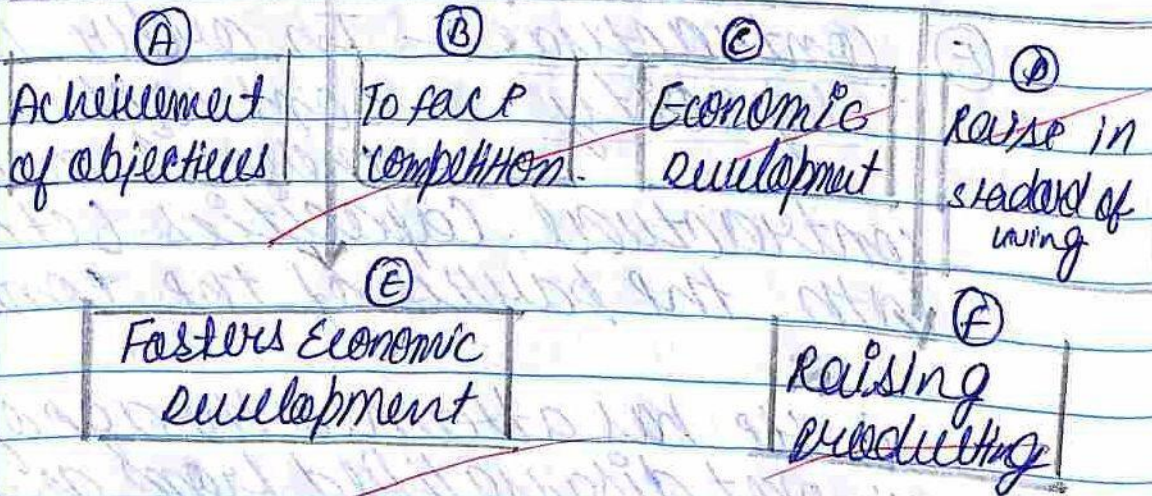 A
Acheivement
of objectives
B
To face
competition.
C
Economic
Development
D
Raise in
stadard of
living
E
Fosters Economic
Development
F
Raising